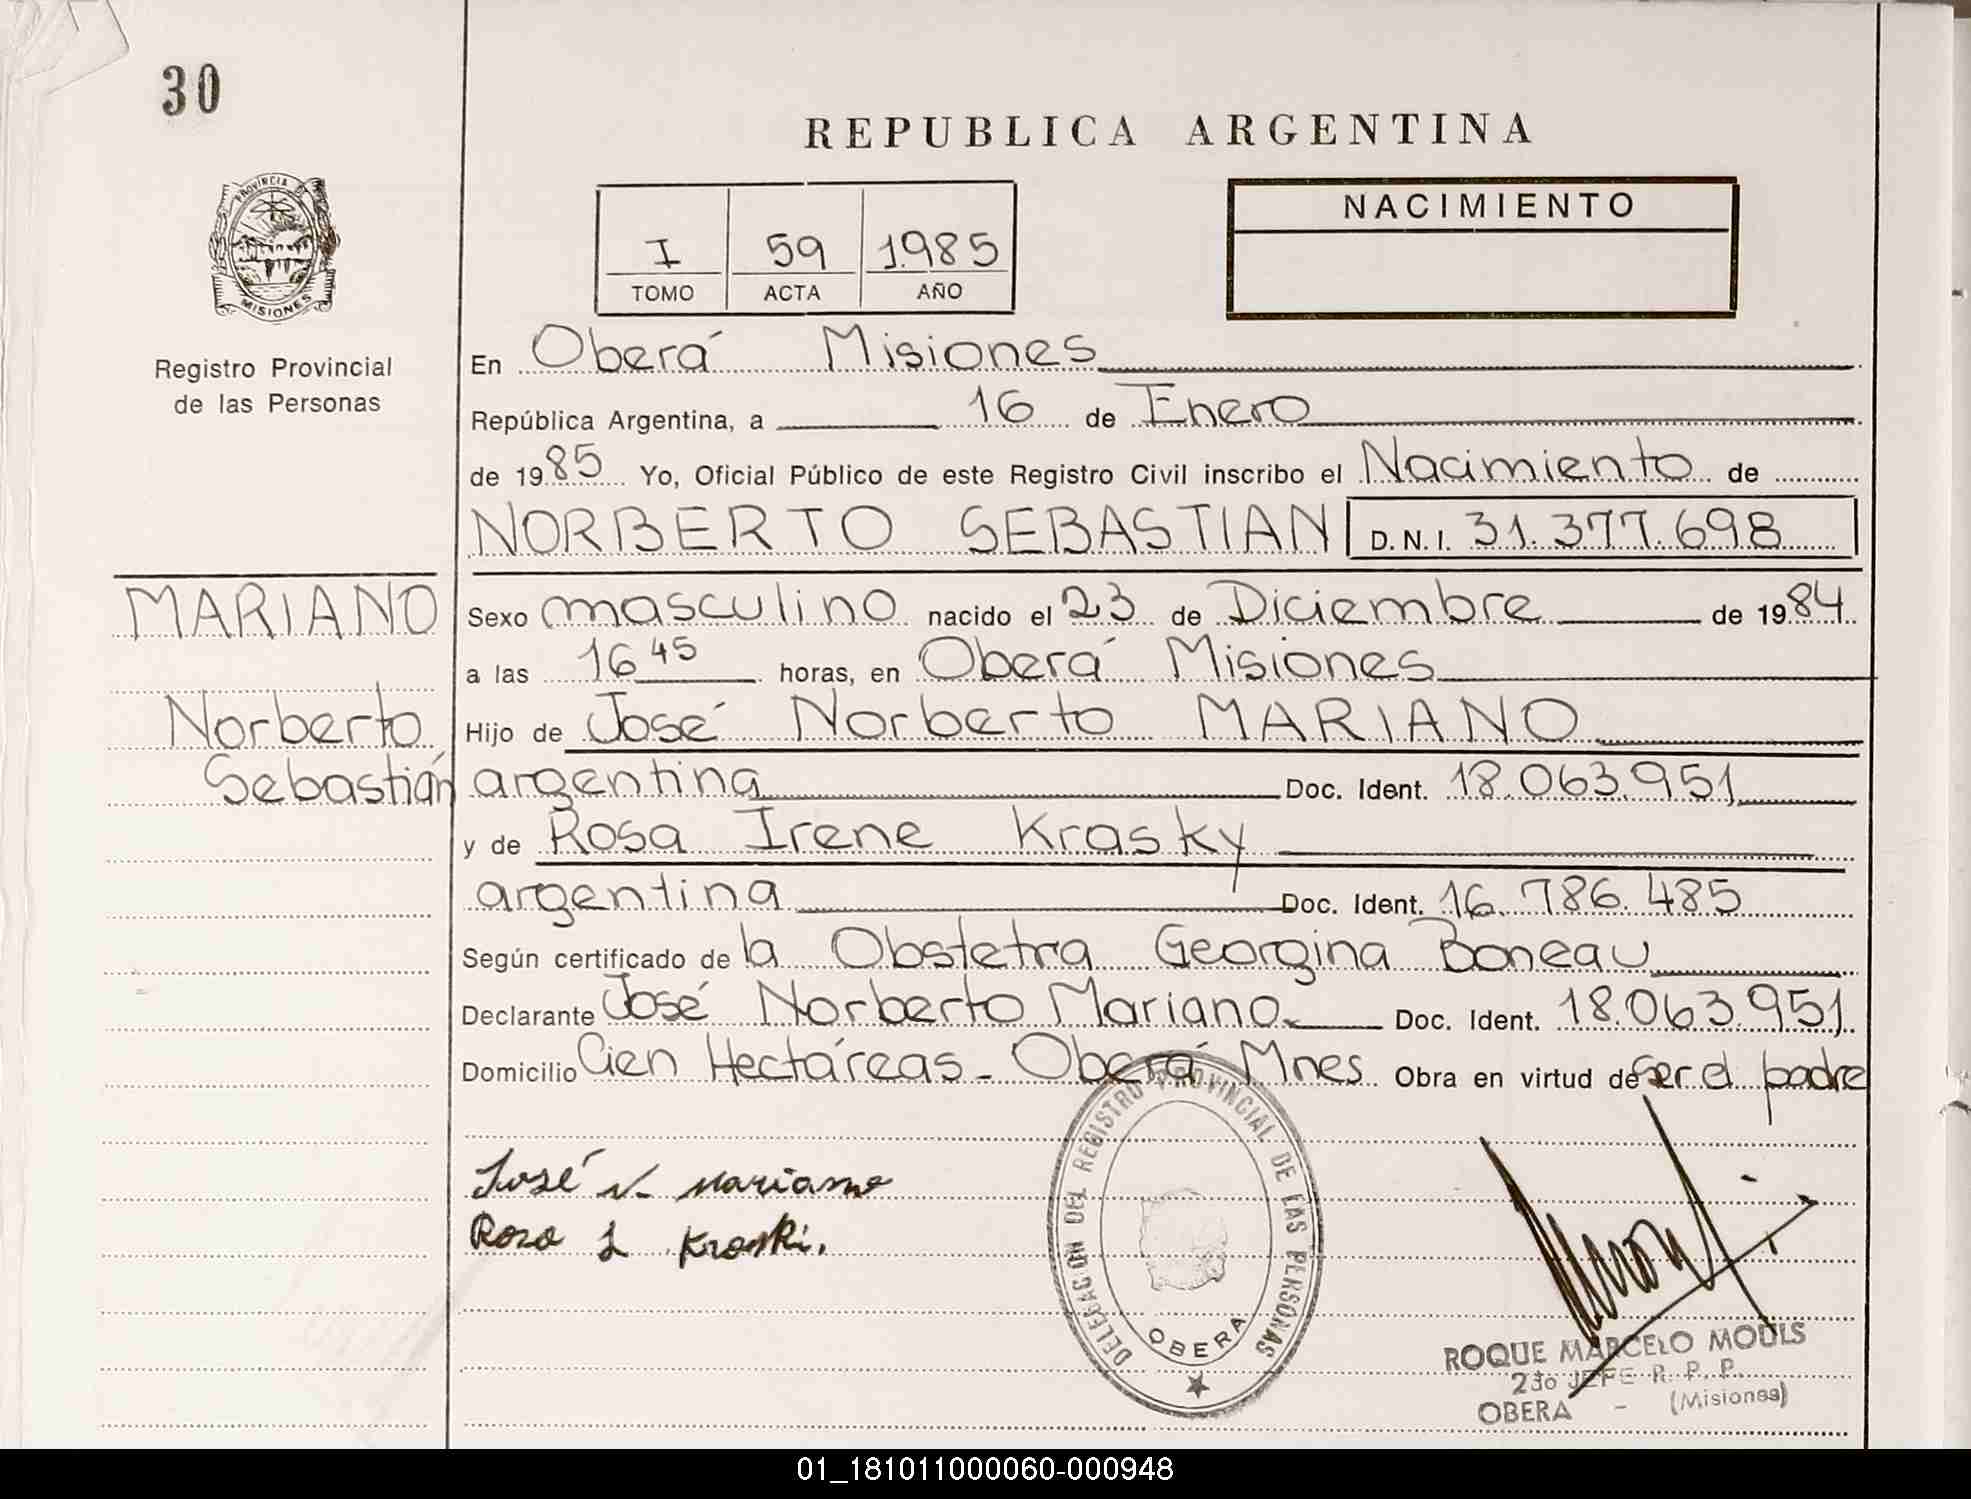 30
REPUBLICA ARGENTINA
PROVINCIA DE
MISIONES
Registro Provincial
de las Personas
I 59 1985
TOMO ACTA AÑO
NACIMIENTO
En Oberá Misiones
República Argentina, a 16 de Enero
de 1985 Yo, Oficial Público de este Registro Civil inscribo el Nacimiento de
NORBERTO SEBASTIAN D.N.I. 31.377.698
MARIANO
Norberto
Sebastián
Sexo masculino nacido el 23 de Diciembre de 1984
a las 16 45 horas, en Oberá Misiones
Hijo de José Norberto MARIANO
argentina Doc. Ident. 18.063.951
y de Rosa Irene Krasky
argentina Doc. Ident. 16.786.485
Según certificado de la Obstetra Georgina Boneau
Declarante José Norberto Mariano Doc. Ident. 18.063.951
Domicilio Cien Hectáreas - Oberá Mnes Obra en virtud de ser el padre
José N. Mariano
Rosa I Kraski.
DELEGACION DEL REGISTRO PROVINCIAL DE LAS PERSONAS
OBERA
ROQUE MARCELO MODLS
2do JEFE R. P. P.
OBERA - (Misiones)
01_181011000060-000948